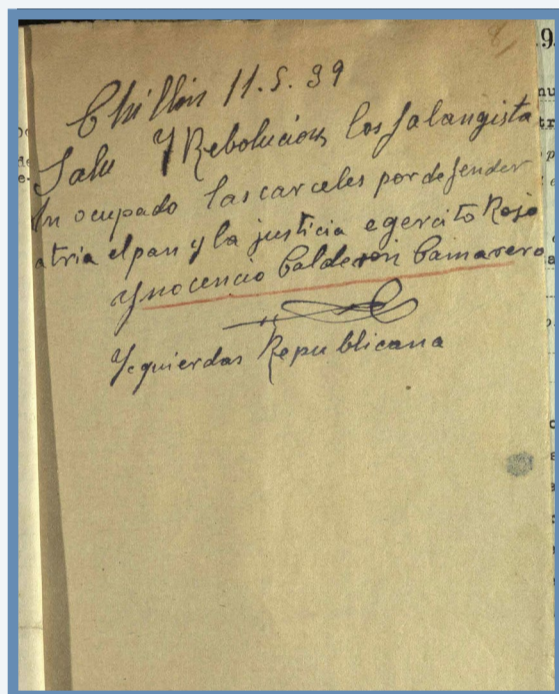 8
Chillin 11.5.39
Salu Y Rebolucion los falangista
an ocupado las carceles por defender
atria el pan y la justicia egercito Rojo
Ynocencio Calderon Camarero
Yzquierdas Republicana
9